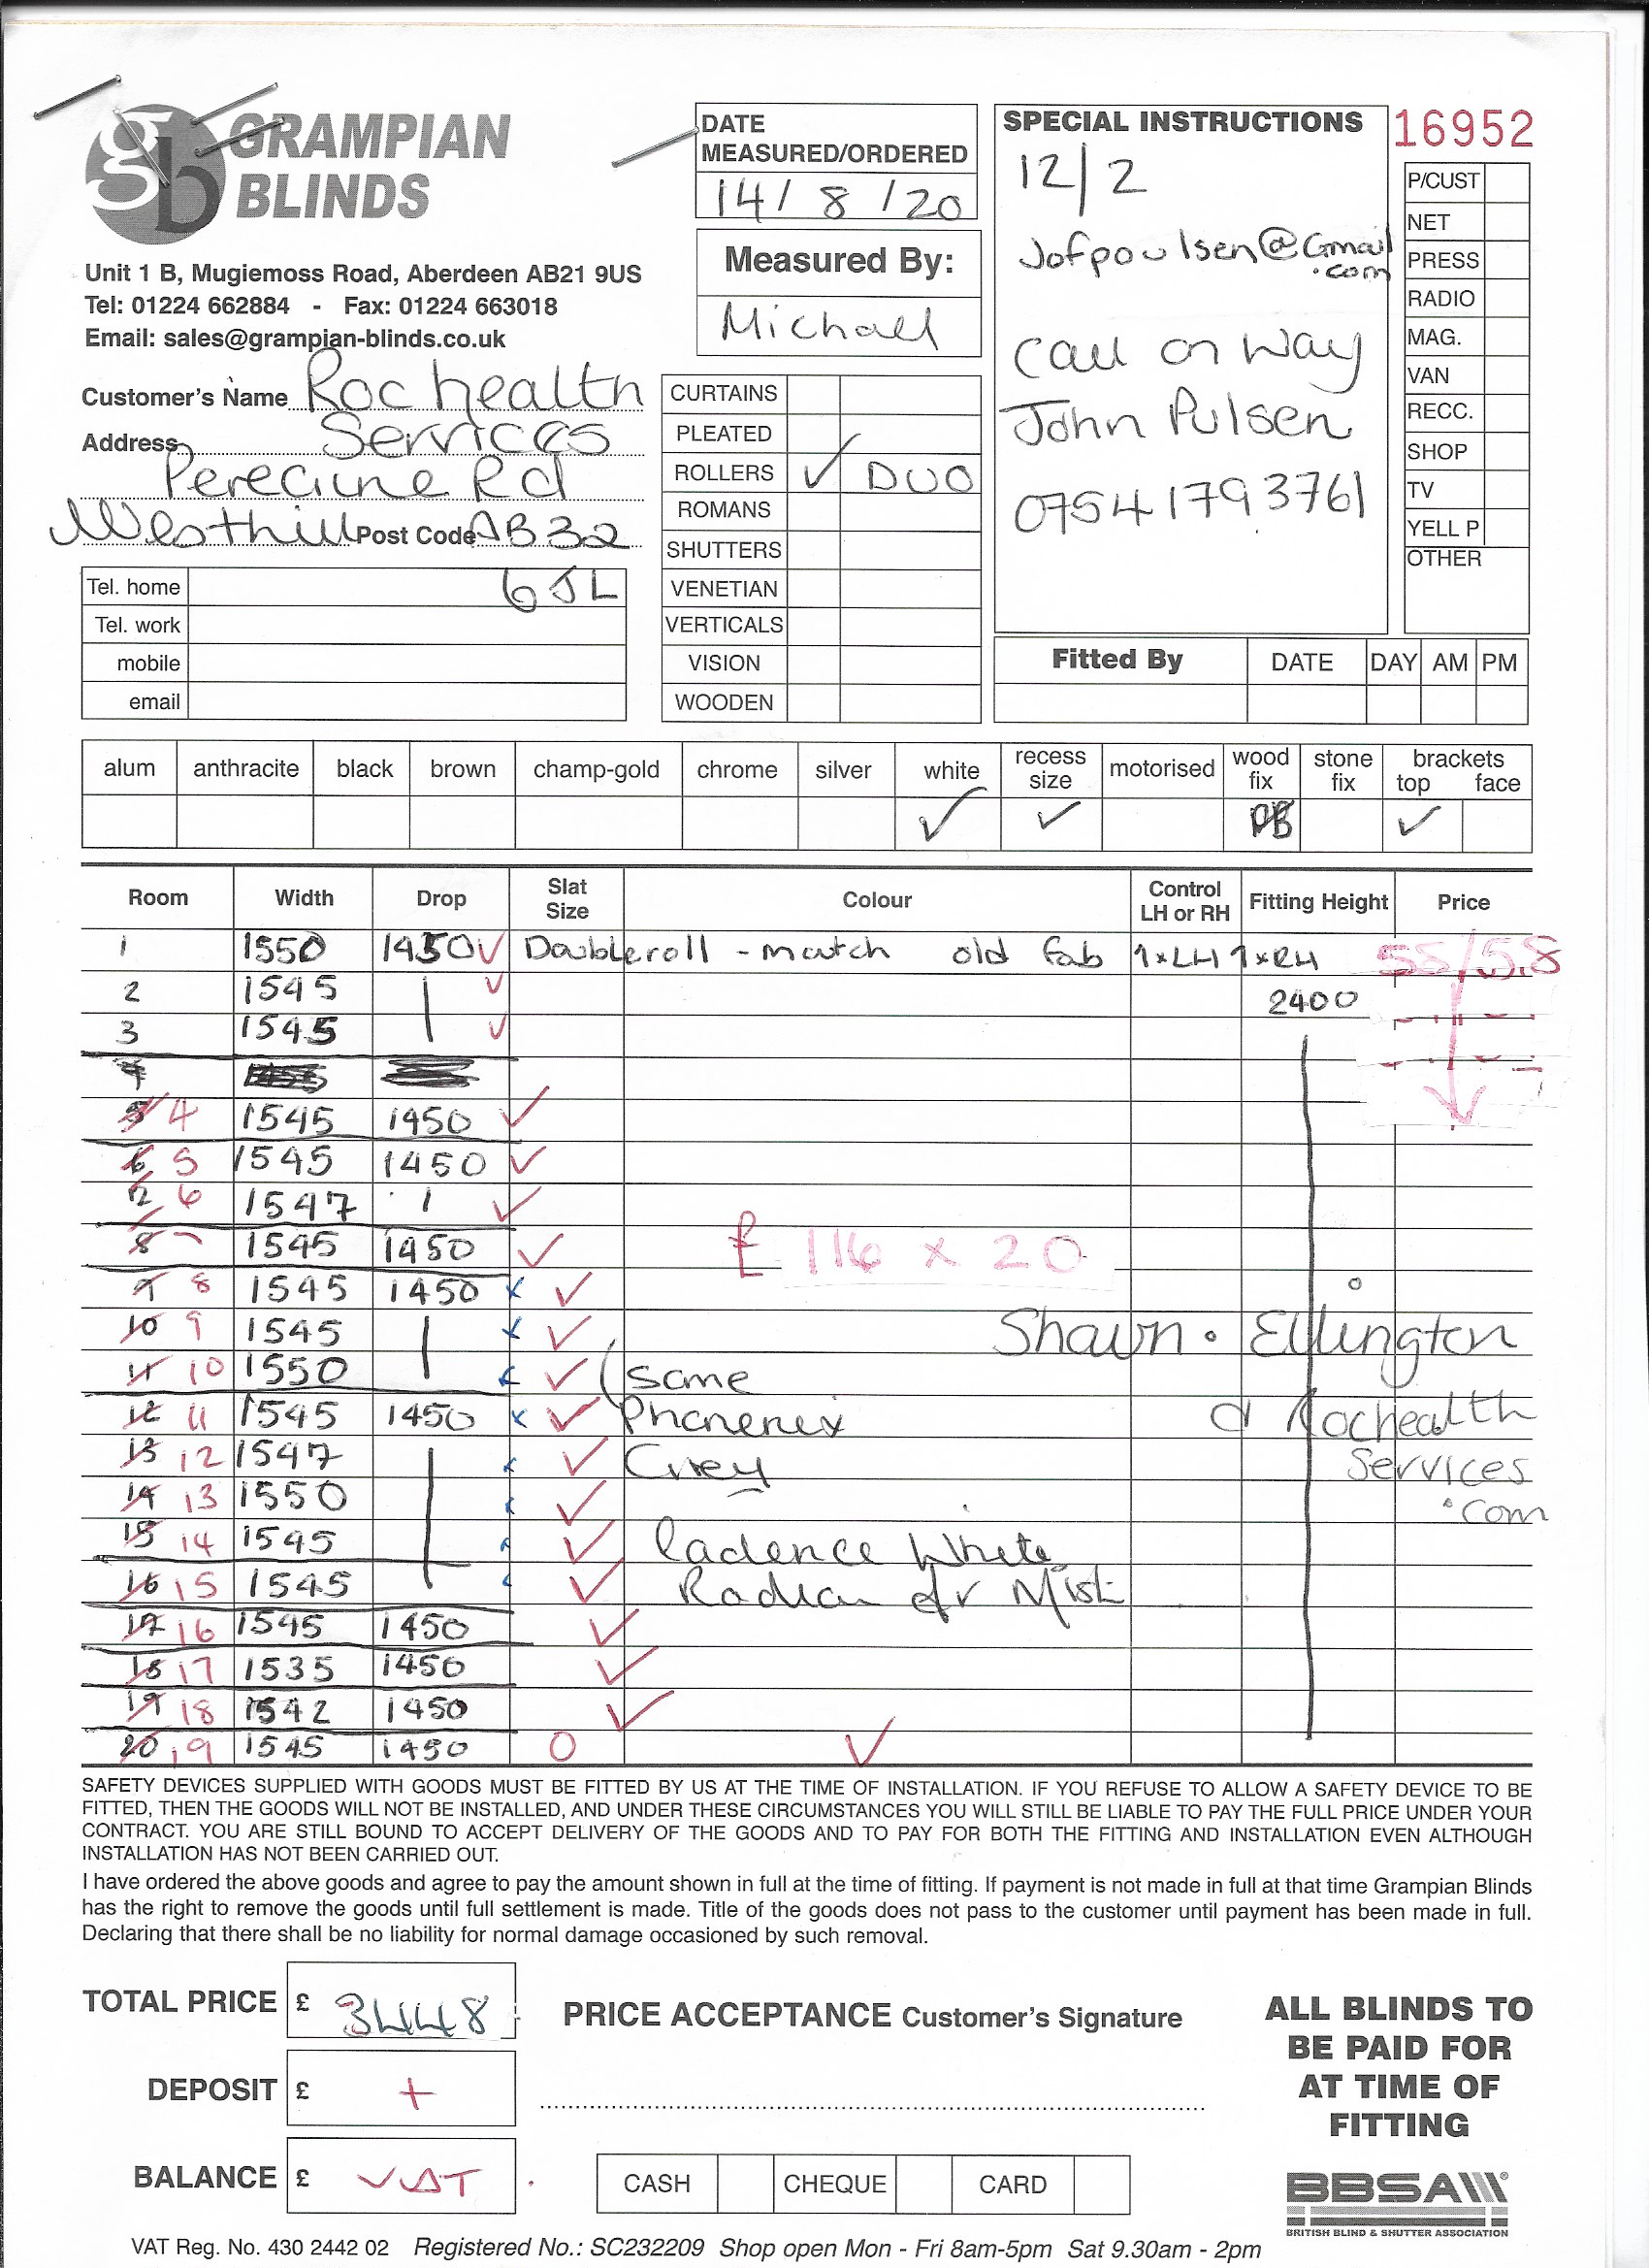 GRAMPIAN
BLINDS
Unit 1 B, Mugiemoss Road, Aberdeen AB21 9US
Tel: 01224 662884 - Fax: 01224 663018
Email: sales@grampian-blinds.co.uk
Customer's Name Rochealth
Address Services
Peregrine Rd
Westhill Post Code AB32
6JL
Tel. home
Tel. work
mobile
email
DATE
MEASURED/ORDERED
14/8/20
Measured By:
Michael
CURTAINS
PLEATED
ROLLERS ✓ DUO
ROMANS
SHUTTERS
VENETIAN
VERTICALS
VISION
WOODEN
SPECIAL INSTRUCTIONS
12/2
Jofpoulsen@Gmail
.com
Call on way
John Pulsen
07541793761
16952
P/CUST
NET
PRESS
RADIO
MAG.
VAN
RECC.
SHOP
TV
YELL P
OTHER
Fitted By DATE DAY AM PM
alum anthracite black brown champ-gold chrome silver white recess size motorised wood fix stone fix brackets top face
✓ ✓ ✓
Room Width Drop Slat Size Colour Control LH or RH Fitting Height Price
1 1550 1450 ✓ Doubleroll - match old fab 1xLH 1xRH 55/58
2 1545 ✓ 2400
3 1545 ✓
4 1545 1450 ✓
5 1545 1450 ✓
6 1547 ✓
8 1545 1450 ✓ £116 x 20
8 1545 1450 ✓
9 1545 ✓ Shawn. Ellington
10 1550 ✓ (Same
11 1545 1450 ✓ Rochealth
12 1547 ✓ Grey Services
13 1550 ✓ .com
14 1545 ✓ Cadence White
15 1545 ✓ Mist
16 1545 1450 ✓
17 1535 1450 ✓
18 1542 1450 ✓
19 1545 1450 O ✓
SAFETY DEVICES SUPPLIED WITH GOODS MUST BE FITTED BY US AT THE TIME OF INSTALLATION. IF YOU REFUSE TO ALLOW A SAFETY DEVICE TO BE
FITTED, THEN THE GOODS WILL NOT BE INSTALLED, AND UNDER THESE CIRCUMSTANCES YOU WILL STILL BE LIABLE TO PAY THE FULL PRICE UNDER YOUR
CONTRACT. YOU ARE STILL BOUND TO ACCEPT DELIVERY OF THE GOODS AND TO PAY FOR BOTH THE FITTING AND INSTALLATION EVEN ALTHOUGH
INSTALLATION HAS NOT BEEN CARRIED OUT.
I have ordered the above goods and agree to pay the amount shown in full at the time of fitting. If payment is not made in full at that time Grampian Blinds
has the right to remove the goods until full settlement is made. Title of the goods does not pass to the customer until payment has been made in full.
Declaring that there shall be no liability for normal damage occasioned by such removal.
TOTAL PRICE £ 3448
PRICE ACCEPTANCE Customer's Signature
DEPOSIT £ +
BALANCE £ VAT
CASH CHEQUE CARD
ALL BLINDS TO
BE PAID FOR
AT TIME OF
FITTING
BBSA
BRITISH BLIND & SHUTTER ASSOCIATION
VAT Reg. No. 430 2442 02 Registered No.: SC232209 Shop open Mon - Fri 8am-5pm Sat 9.30am - 2pm